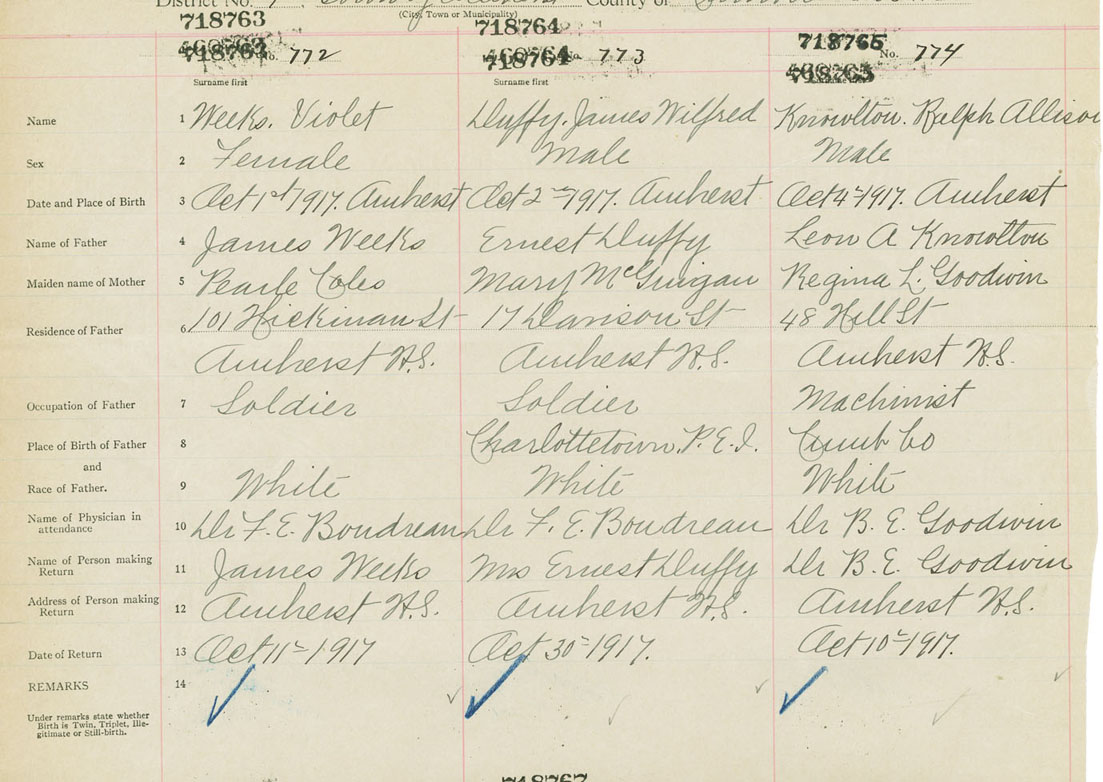 District No. County of
(City, Town or Municipality)
718763 718764 718765
718763 No. 772 718764 No. 773 718765 No. 774
Surname first Surname first Surname first
Name 1 Weeks, Violet Duffy, James Wilfred Knowlton. Ralph Allison
Sex 2 Female Male Male
Date and Place of Birth 3 Oct 1st 1917. Amherst Oct 2nd 1917. Amherst Oct 4 1917. Amherst
Name of Father 4 James Weeks Ernest Duffy Leon A Knowlton
Maiden name of Mother 5 Pearle Coles Mary McGuigan Regina L. Goodwin
Residence of Father 6 101 Hickman St 17 Davison St 48 Hill St
Amherst N.S. Amherst N.S. Amherst N.S.
Occupation of Father 7 Soldier Soldier Machinist
Place of Birth of Father 8 Charlottetown. P.E.I. Cumb Co
and
Race of Father. 9 White White White
Name of Physician in attendance 10 Dr F. E. Boudreau Dr F. E. Boudreau Dr B. E. Goodwin
Name of Person making Return 11 James Weeks Mrs Ernest Duffy Dr B. E. Goodwin
Address of Person making Return 12 Amherst N.S. Amherst N.S. Amherst N.S.
Date of Return 13 Oct 11 1917 Oct 30 1917. Oct 10 1917.
REMARKS 14
Under remarks state whether
Birth is Twin, Triplet, Ille-
gitimate or Still-birth.
718767